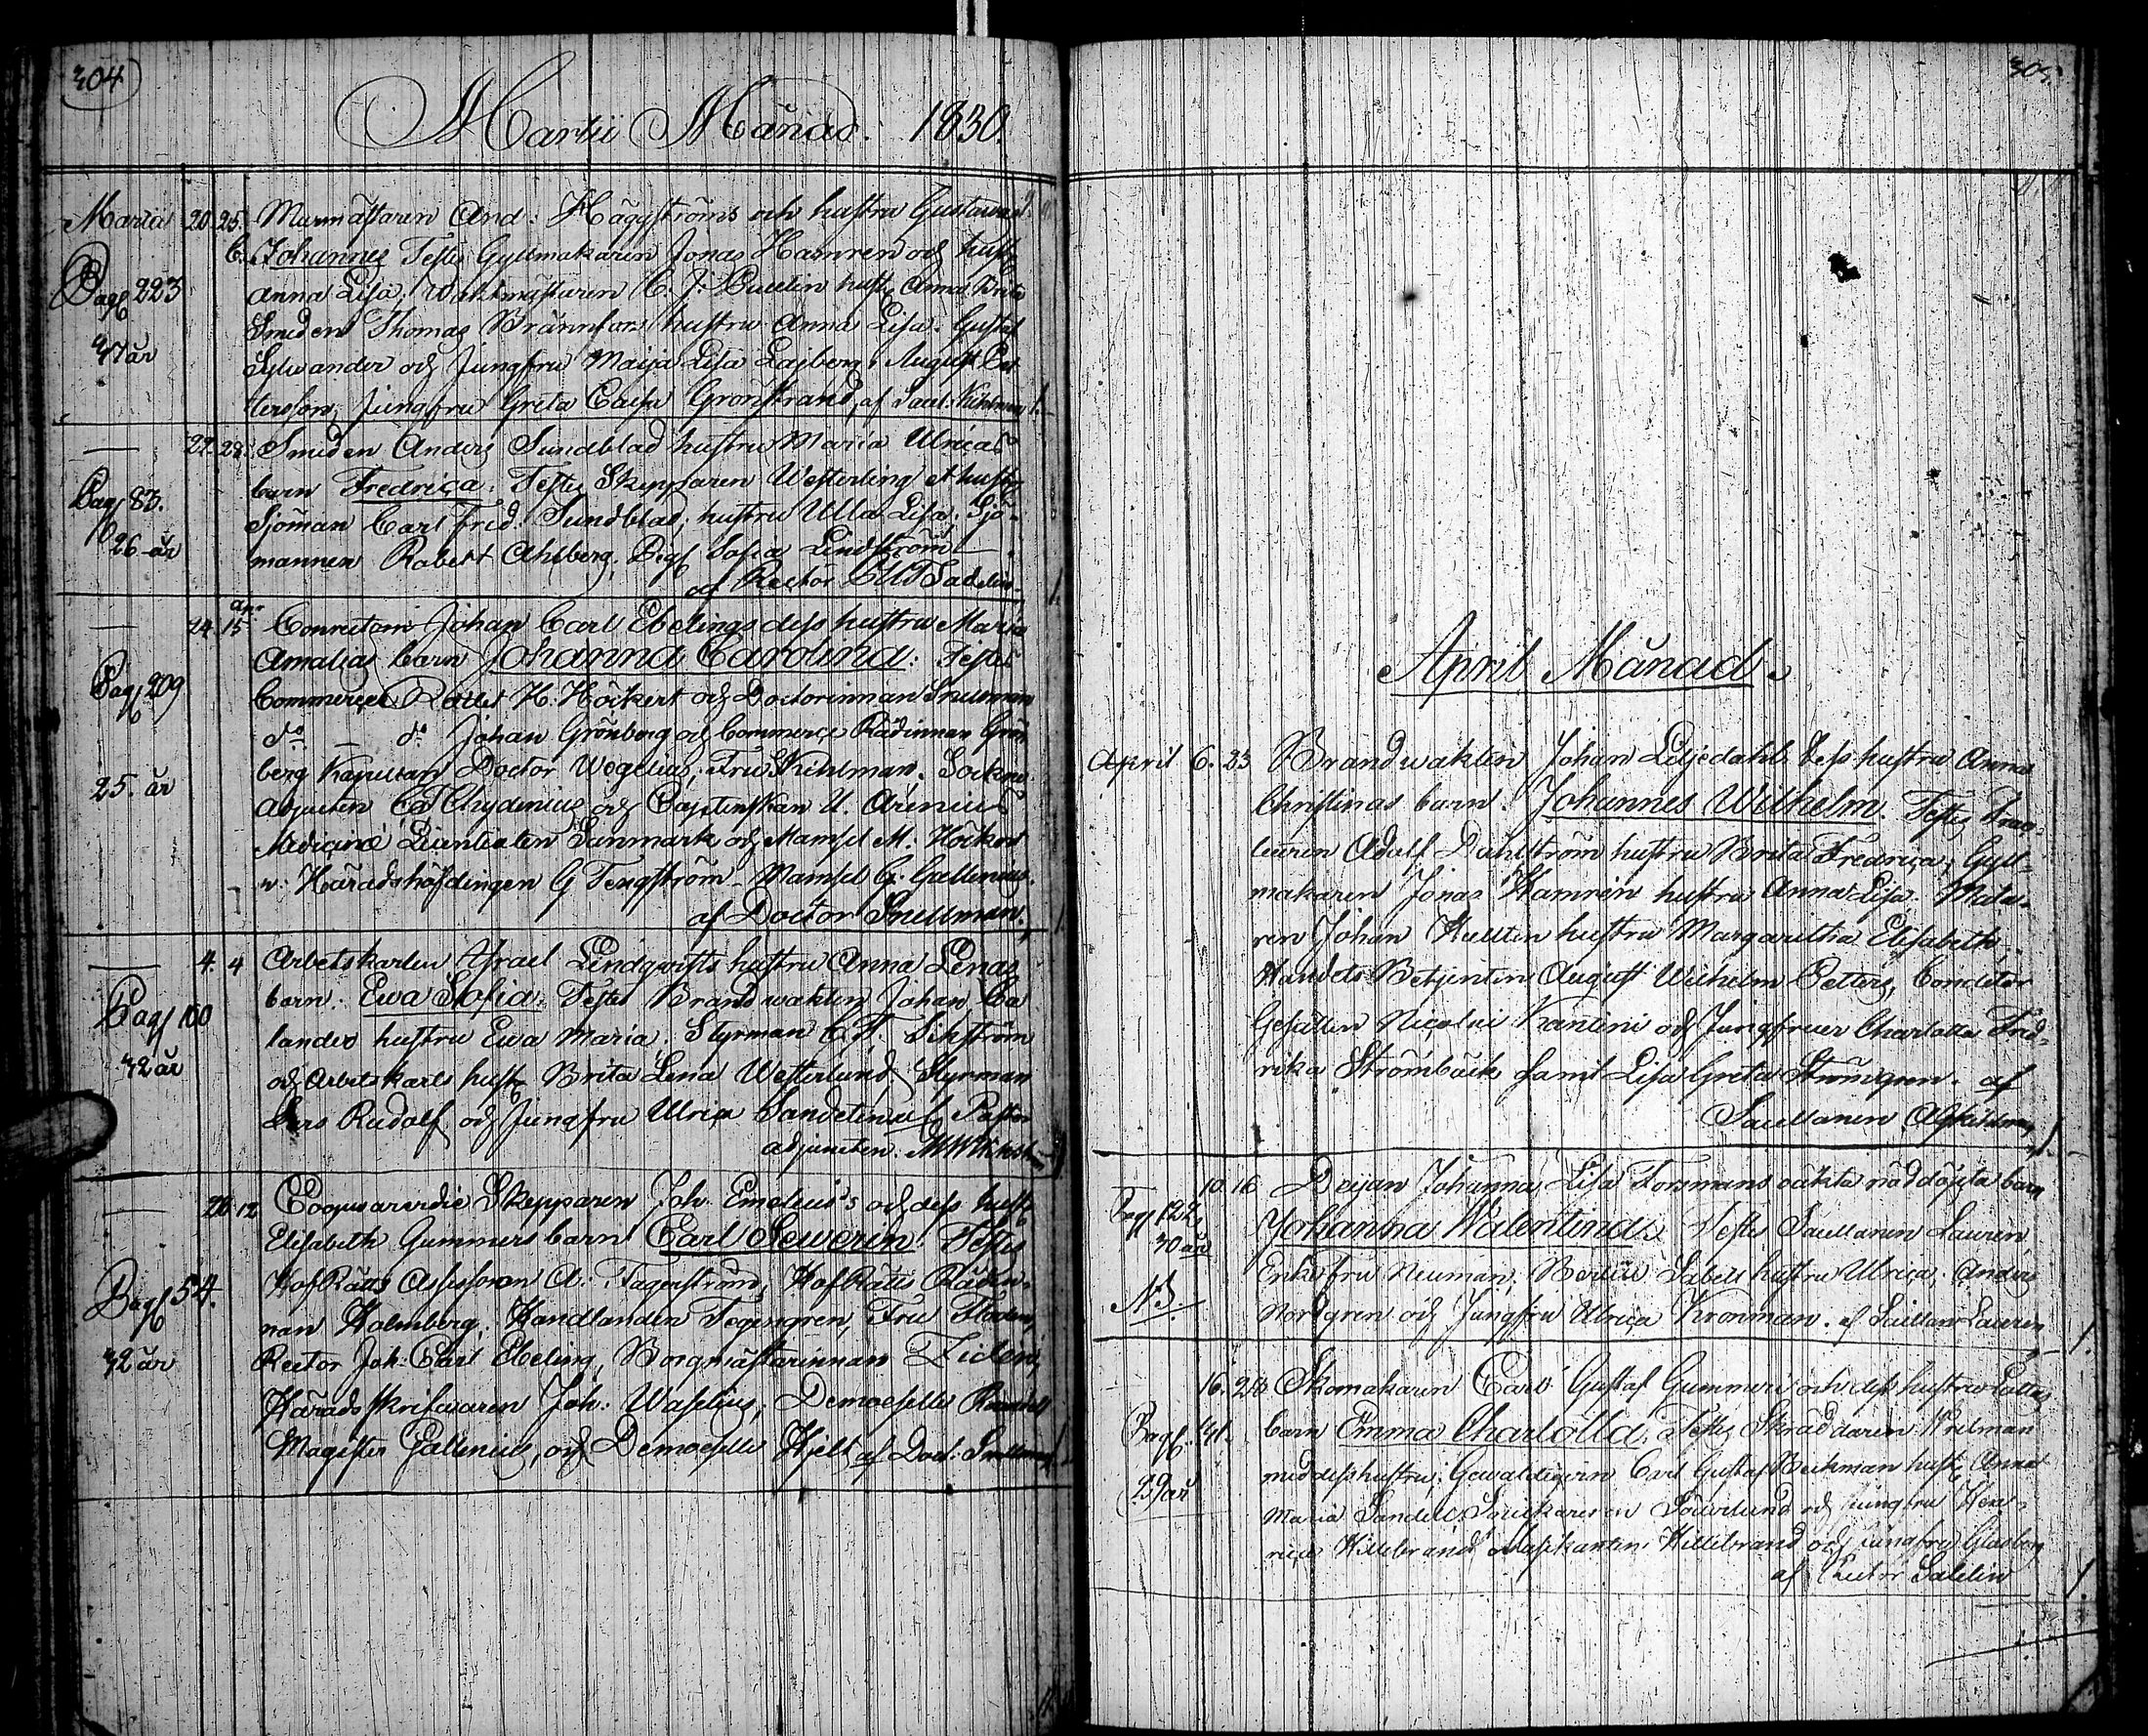 304
Martii Månad. 1830.
Martii 20. 25. Murmästaren And: Häggströms och hustru Gustavas
b. Johannes Testes Gyllmakaren Jonas Hamren och hustr
Pag 223
Anna Lisa; Waktmästaren C. J. hustr Anna Brita
Smeden Thomas Brännfors hustru Anna Lisa. Gustaf
47 år
Sylvander och Jungfru Maija Lisa Lajberg. August Pet
tersson, Jungfru Greta Caisa Grönstrand, af Sacell. Kihlman
22. 28. Smeden Anders Sundblad hustru Maria Ulricas
barn Fredrica. Testes Skepparen Westerling et hustr
Pag 83.
Sjöman Carl Fred. Sundblad, hustru Ulla Lisa. Sjö-
26 år
mannen Robert Ahlberg, Pig Sofia Lindström
af Rector
24. apr 15 Conrectorn Johan Carl Ebelings dess hustru Maria
Amalias barn Johanna Carolina: Testes
Pag 209
Commerce Rådet H. Höckert och Doctorinnan Snellman
do — do Johan Grönberg och Commerce Rådinnan Grön
berg Kapellan Doctor Wegelius, Fru Kihlman. Sockne
25. år
adjuncten Chydenius och Captenskan U. Arenius
Medicine Licentiaten Sanmark och Mamsel M. Höckert
v. Häradshöfdingen G Tengström - Mamsel G. Gallenius.
af Doctor Snellman.
4. 4 Arbetskarlen Israel Lindqvists hustru Anna Lenas
barn: Ewa Sofia. Testes Brandwakten Johan Ca
Pag 100
lander hustru Ewa Maria. Styrman C. F. Sikström
42 år
och Arbetskarls hustr Brita Lena Westerlund. Styrman
Lars Rudolf och Jungfru Ulrica Sandelin af Pastors
adjuncten.
26. 12 Coopvaerdie Skepparen Joh. Emelius's och dess hustr
Elisabeth Gummers barn Carl Sewerin. Testes
Pag 54.
HofRätts Assessoren A. Fagerström, HofRätts Rådin
nan Holmberg, Handlanden Tegengren, Fru Floden,
42 år
Rector Joh: Carl Ebeling, Borgmästarinnan Tiden,
Häradsskrifvaren Joh: Waselius, Demoeselle
Magister Gallenius, och Demoeselle Hjelt af Doct. Snellman
305.
April Månad.
April 6. 23 Brandwakten Johan Liljedahl dess hustru Anna
Christinas barn. Johannes Wilhelm. Testes
Adolf Dahlström hustru Brita Fredrica; Gyll-
makaren Jonas Hamren hustru Anna Lisa. Måla-
ren Johan Hulltin hustru Margaretha Elisabeth,
Handels Betjenten August Wilhelm Petters, Conditor
Gesällen Nicolai Kantini och Jungfruer Charlotta Fred-
rika Strömbäck samt Lisa Greta Strömgren. af
Sacellanen
10. 16 Deijan Johanna Lisa Forsmans oäkta nöddöpta barn
Pag 122
30 år
Johanna Walentina. Testes Sacellanen Laurén
N.D.
Enkefru Neuman. Sabell hustru Ulrica. Anders
Nordgren och Jungfru Ulrica Kronman. af Sacellan Laurén
16. 25 Skomakaren Carl Gustaf Gummeri och dess hustru Lottas
Pag. 41.
barn Emma Charlotta. Testes Skräddaren
29 år
med dess hustru; Gewaldigern Carl Gustaf Beckman hustr Anna
Maria Sandell; Snickaren Söderlund och Jungfru Hen-
rica Hillebrand Musikanten Hillebrand och Jungfru
af Rector